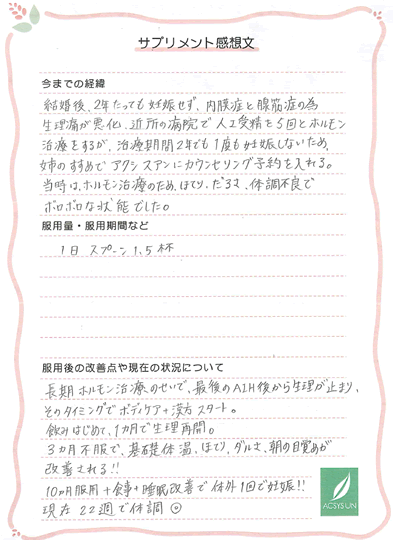 サプリメント感想文
今までの経緯
結婚後、2年たっても妊娠せず、内膜症と腺筋症の為
生理痛が悪化、近所の病院で人工受精を5回とホルモン
治療をするが、治療期間2年でも1度も妊娠しないため、
姉のすすめでアクシスアンにカウンセリング予約を入れる。
当時は、ホルモン治療のため、ほてり、だるさ、体調不良で
ボロボロな状態でした。
服用量・服用期間など
1日 スプーン 1,5 杯
服用後の改善点や現在の状況について
長期ホルモン治療のせいで、最後のAIH後から生理が止まり、
そのタイミングでボディケア+漢方スタート。
飲みはじめて、1カ月で生理再開。
3カ月不服で、基礎体温、ほてり、ダルさ、朝の目覚めが
改善される!!
10ヵ月服用+食事+睡眠改善で体外1回で妊娠!!
現在22週で体調◎
ACSYS UN